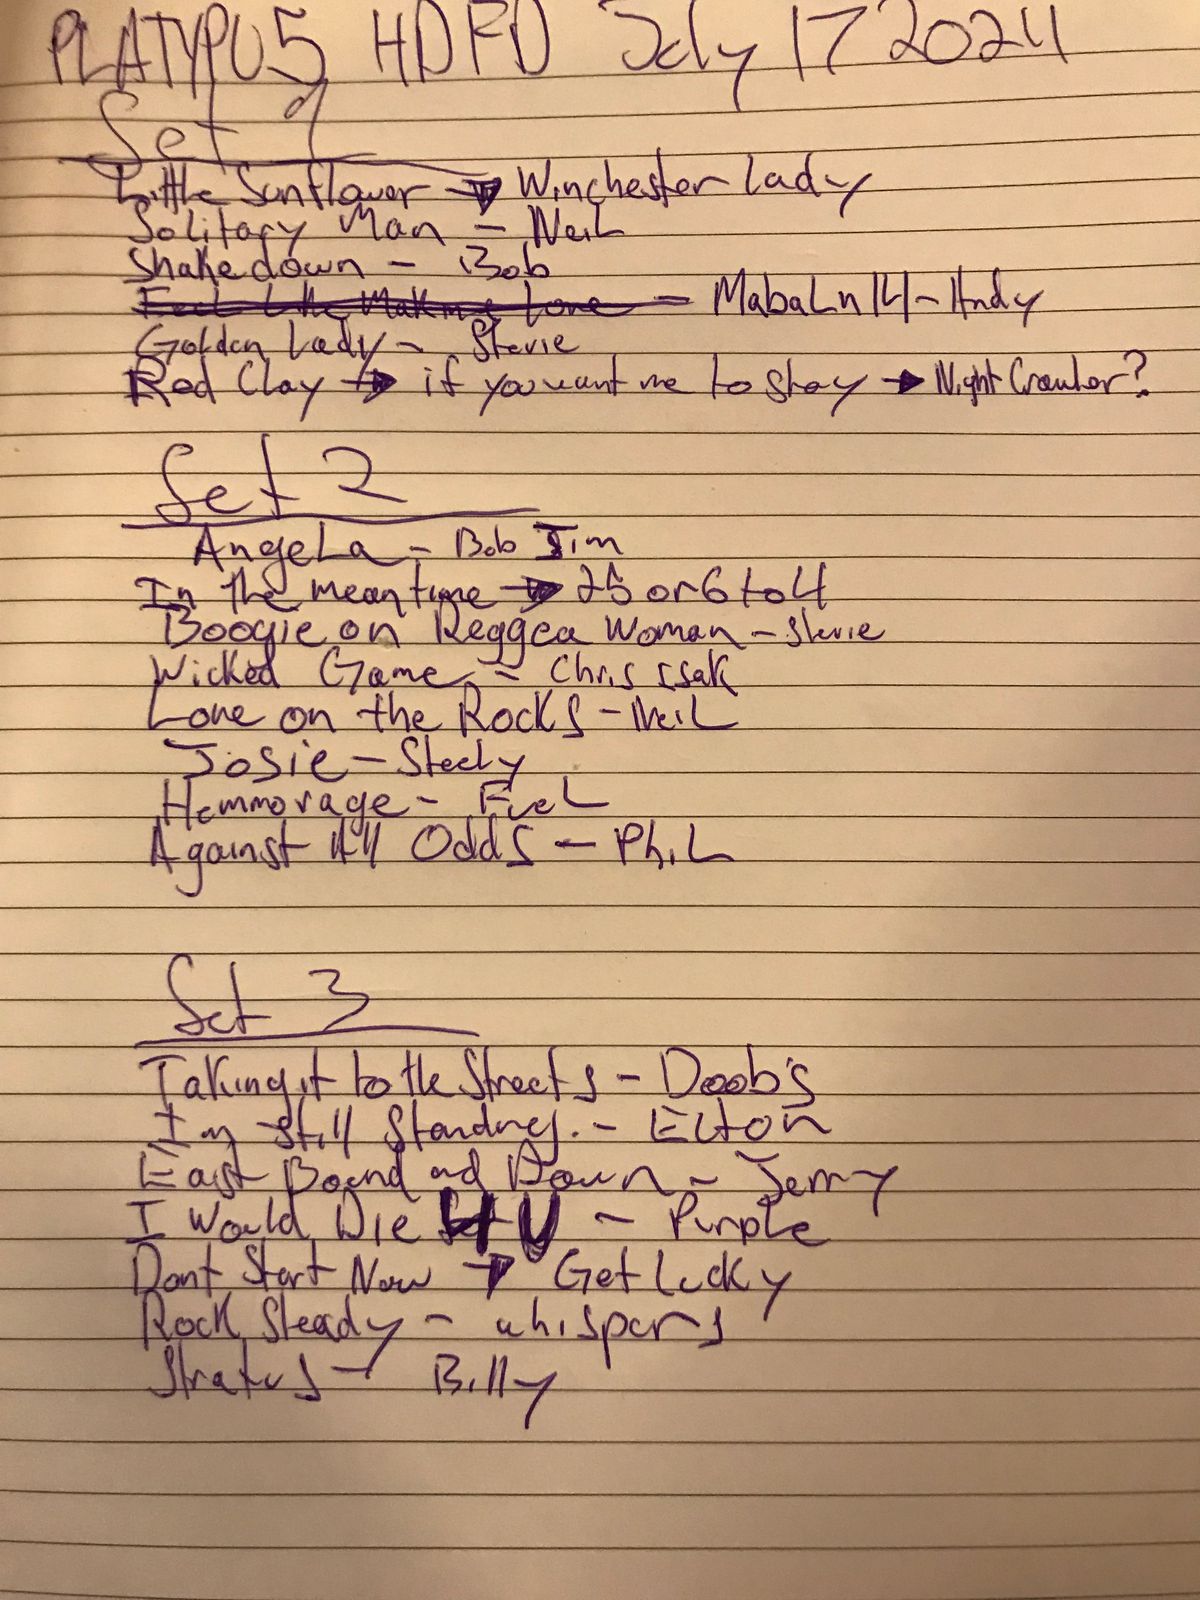 PLATYPUS HDFD July 17 2024
Set 1
Little Sunflower → Winchester Lady
Solitary Man - Neil
Shakedown - Bob
Feel Like Making Love - MabaLulu - Andy
Golden Lady - Stevie
Red Clay → if you want me to stay → Night Crawler?
Set 2
AngeLa - Bob Jim
In the meantime → 25 or 6 to 4
Boogie on Reggea Woman - Stevie
Wicked Game - Chris Isak
Love on the Rocks - Neil
Josie - Steely
Hemmorage - Fuel
Against All Odds - Phil
Set 3
Taking it to the Streets - Doob's
I'm Still Standing. - Elton
East Bound and Down - Jerry
I Would Die 4 U - Purple
Dont Start Now → Get Lucky
Rock Steady - whispers
Stratus - Billy